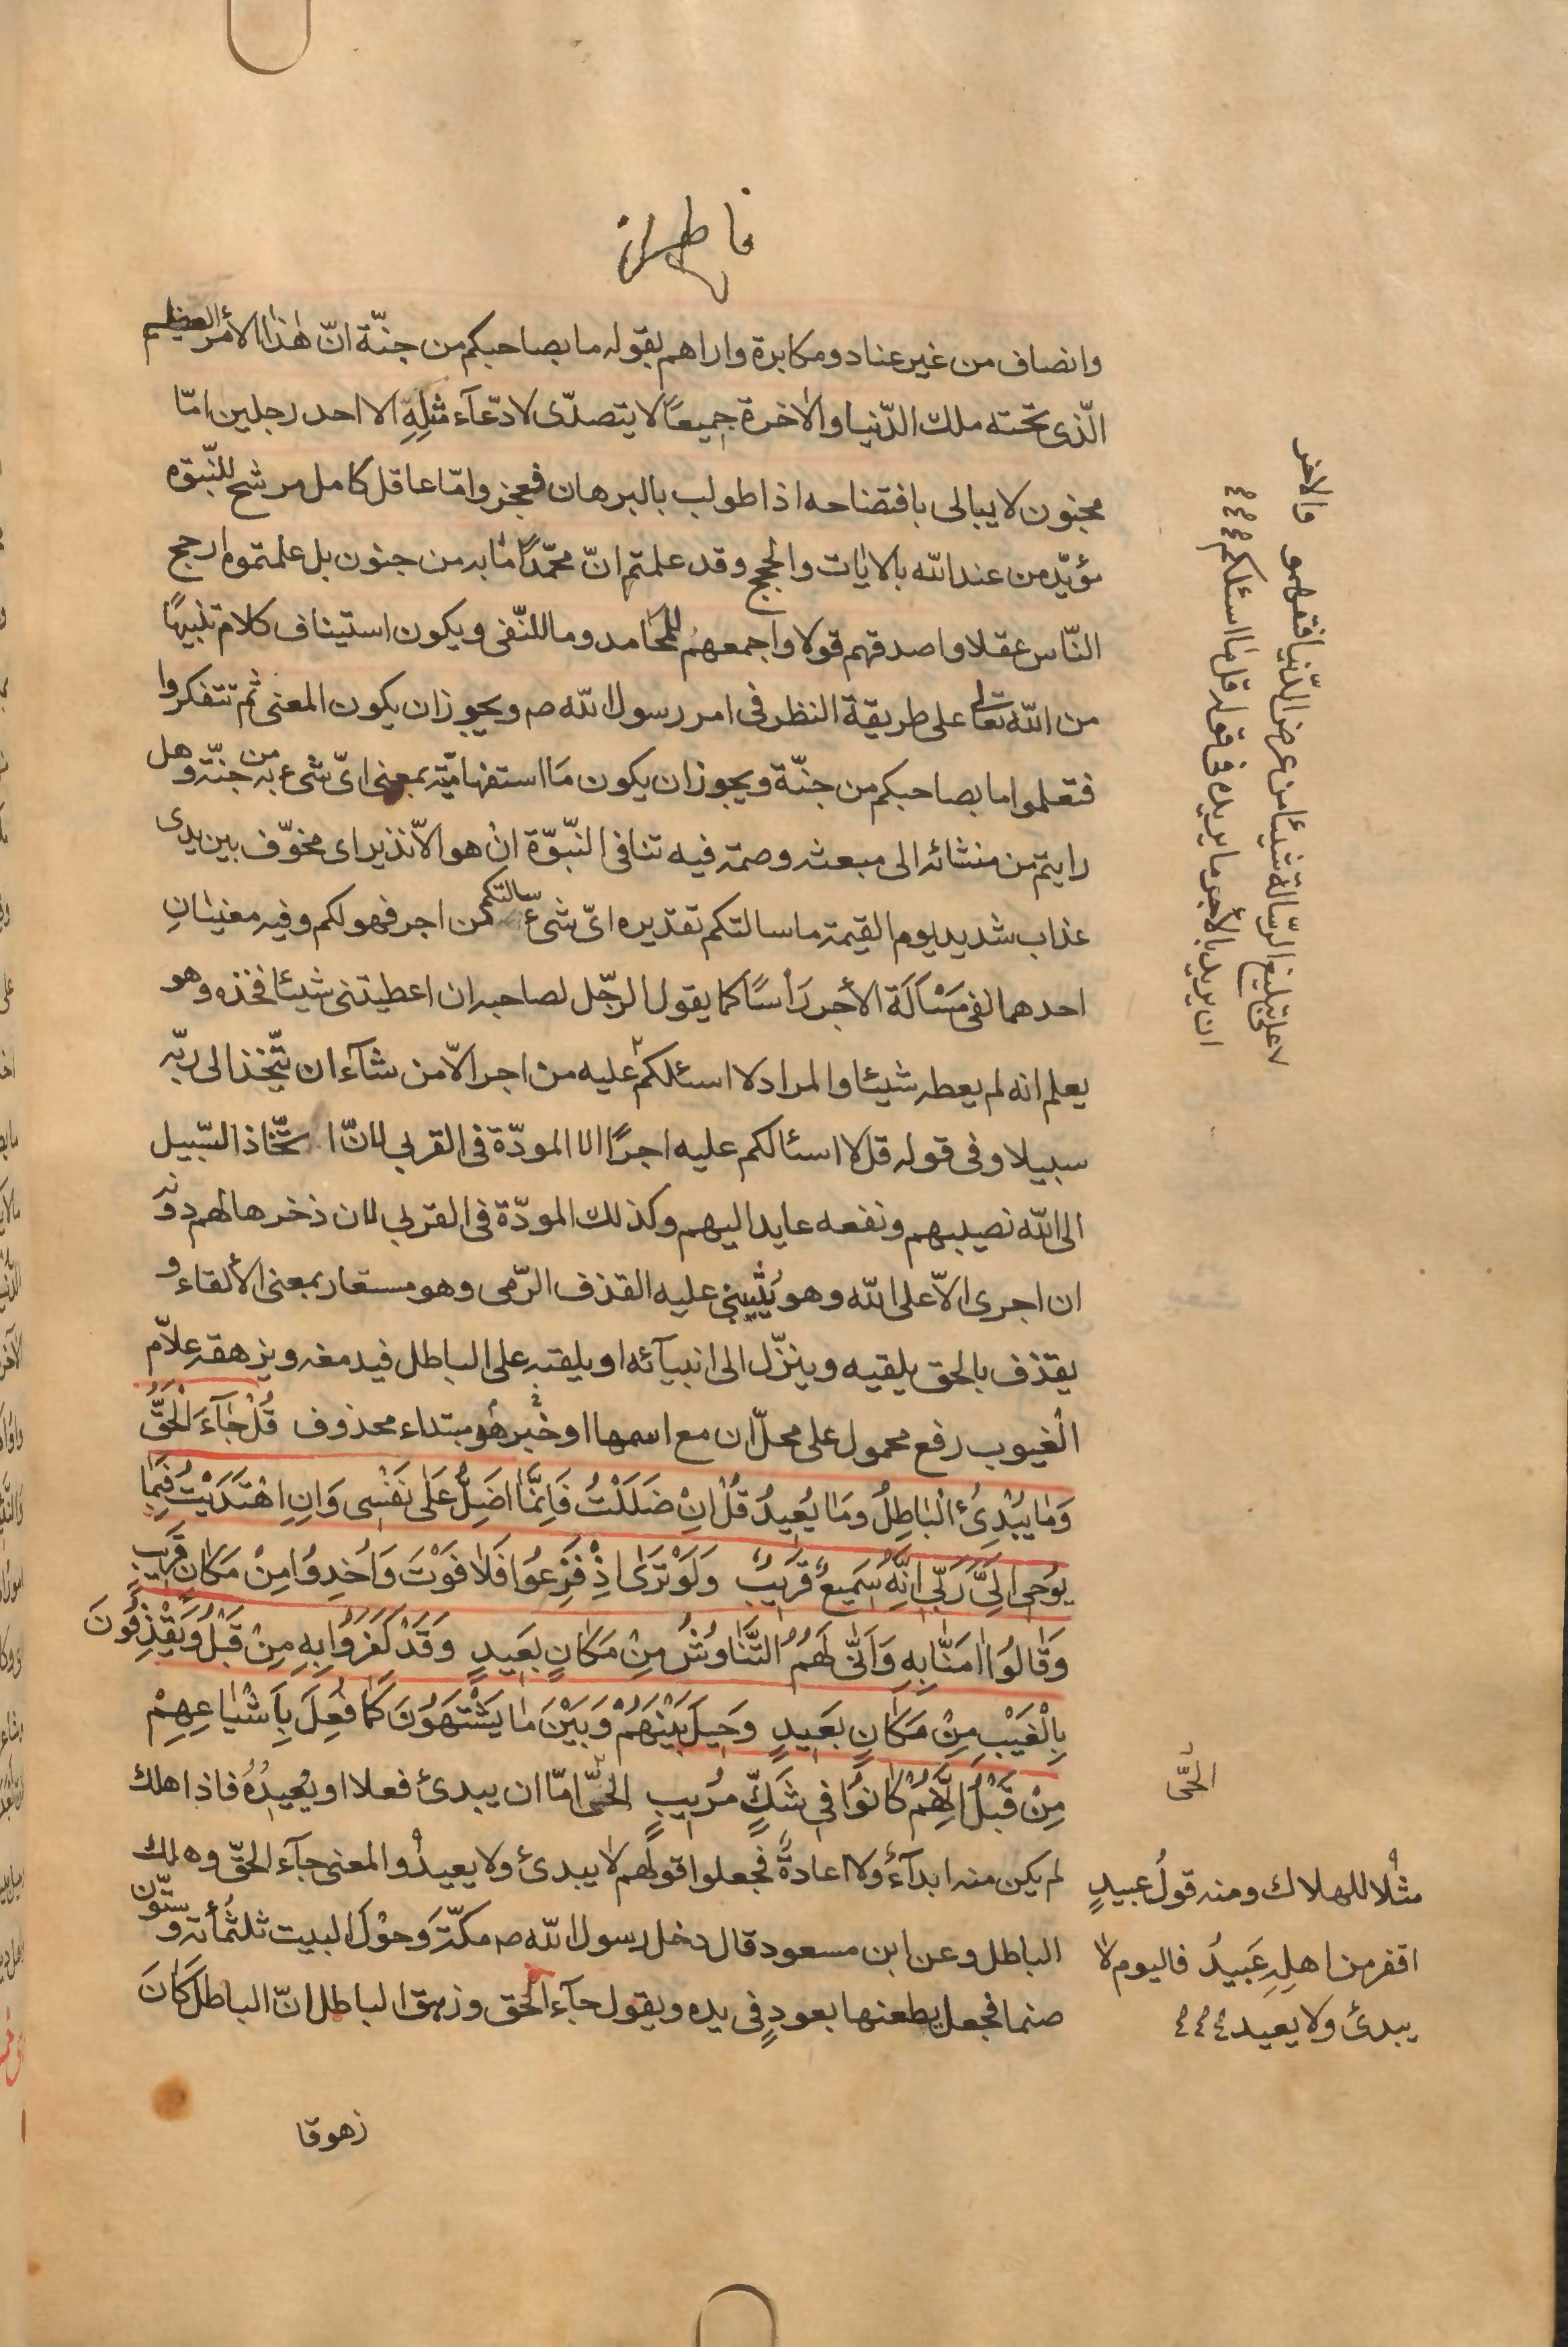 وانصاف من غير عناد ومكابرة واراهم بقوله ما بصاحبكم من جنّة انّ هٰذا الأمر العظيم
الّذى تحته ملك الدّنيا والاخرة جميعًا لا يتصدّى لادّعآء مثلِهِ الا احد رجلين امّا
مجنون لا يبالى بافتضاحه اذا طولب بالبرهان فعجز وامّا عاقل كامل مرشح للنّبوّه
مؤيّد من عند اللّه بالايات والحجج وقد علمتم انّ محمّدًا ما به من جنون بل علمتموه ارجح
النّاس عقلا واصدقهم قولا واجمعهم للمحامد وما للنّفى ويكون استيناف كلام تنبيهًا
من اللّه تعالى على طريقة النظر فى امر رسول اللّه ص ويجوز ان يكون المعنى ثم تتفكروا
فتعلموا ما بصاحبكم من جنّة ويجوز ان يكون مَا استفهاميّة بمعنى اىّ شىء به من جنّة وهل
رايتم من منشائه الى مبعثه وصمة فيه تنافى النّبوّة انْ هو الاّ نذير اى مخوّف بين يدى
عذاب شديد يوم القيمة ما سالتكم تقديره اىّ شىء سالتكم من اجر فهو لكم وفيه معنيٰانِ
احدهما نفى مَسْاَلَة الأجر رَأسًا كما يقول الرّجل لصاحبه ان اعطيتنى شيئا فخذه وهو
يعلم انه لم يعطه شيئا والمراد لا اسئلكم عليه من اجر الاّ من شآء ان يتّخذ الى ربّه
سبيلا وفى قوله قل لا اسئالكم عليه اجرًا الا المودّة فى القربى لانّ اتّخاذ السّبيل
الى اللّه نصيبهم ونفعه عايد اليهم وكذلك المودّة فى القربى لان ذخرها لهم دونه
ان اجرى الاّ على اللّه وهو يُثيبنى عليه القذف الرّمى وهو مستعار بمعنى الألقاء و
يقذف بالحق يلقيه وينزّل الى انبيآئه او يلقيه على الباطل فيدمغه ويزهقه علاّم
الغيوب رفع محمول على محلّ ان مع اسمها او خبر هُو مبتداء محذوف قُلْ جٰآءَ الْحَقُّ
وَمٰا يُبْدِئُ الْبٰاطِلُ وَمٰا يُعِيدُ قُلْ اِنْ ضَلَلْتُ فَاِنَّمٰا اَضِلُّ عَلىٰ نَفْسِى وَاِنِ اهْتَدَيْتُ فَبِمٰا
يُوحِى اِلَىَّ رَبِّى اِنَّهُ سَمِيعٌ قَرِيبٌ وَلَوْ تَرىٰ اِذْ فَزِعُوا فَلاٰ فَوْتَ وَاُخِذُوا مِنْ مَكٰانٍ قَرِيبٍ
وَقٰالُوا اٰمَنّٰا بِهِ وَاَنّٰى لَهُمُ التَّنٰاوُشُ مِنْ مَكٰانٍ بَعِيدٍ وَقَدْ كَفَرُوا بِهِ مِنْ قَبْلُ وَيَقْذِفُونَ
بِالْغَيْبِ مِنْ مَكٰانٍ بَعِيدٍ وَحِيلَ بَيْنَهُمْ وَبَيْنَ مٰا يَشْتَهُونَ كَمٰا فُعِلَ بِاَشْيٰاعِهِمْ
مِنْ قَبْلُ اِنَّهُمْ كٰانُوا فِى شَكٍّ مُرِيبٍ الحىّ امّا ان يبدئ فعلا او يُعيدُهُ فاذا هلك
لم يكن منه ابدآءٌ ولا اعادةٌ فجعلوا قولهم لا يبدئ ولا يعيدُ والمعنى جآء الحقّ وهلك
الباطل وعن ابن مسعود قال دخل رسول اللّه ص مكّة وَحوْلَ البيت ثلثمأئة وستّون
صنما فجعل يطعنها بعودٍ فى يده ويقول جآء الحق وزهق الباطل انّ الباطل كٰانَ
زهوقا
والاخر
ان يريد بالأجر ما يريده فى قوله قل مٰا اسئلكم
على تبليغ الرّسالة شيئا من عرض الدّنيا فهو
الحىّ
مثلا للهلاك ومنه قولُ عبيدٍ
اقفر من اهلِهِ عَبيدُ فاليوم لاٰ
يبدئ ولا يعيد